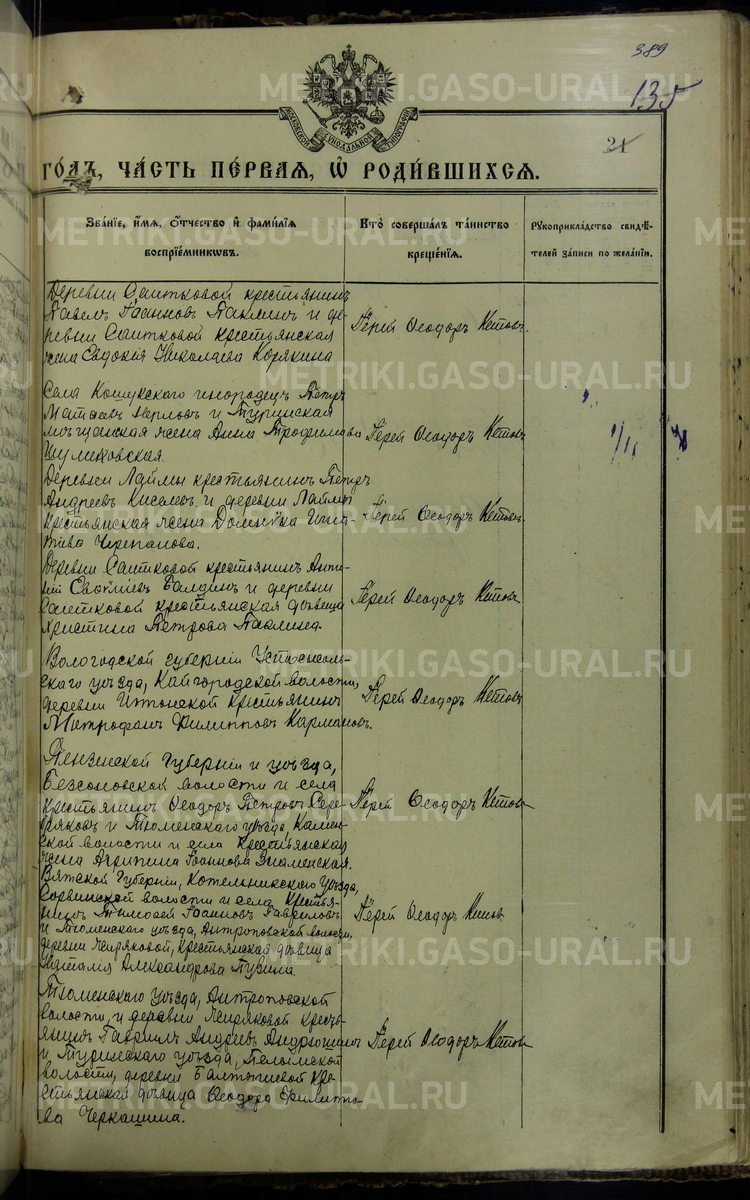 389
135
21
МОСКОВСКОЙ СѴНОДАЛЬНОЙ ТИПОГРАФІИ
ГО́ДЪ, ЧА́СТЬ ПЕ́РВАЯ, Ѡ҆ РОДИ́ВШИХСЯ.
Зва́нїе, и҆́мя, ѻ҆́тчество и҆ фами́лїя воспрїе́мникωвъ.
Кто̀ соверша́лъ та́инство креще́нїя.
Рꙋкоприкла́дство свидѣ́телей за́писи по жела́нїю.
Деревни Саитковой крестьянинъ
Павелъ Іоанновъ Паклинъ и де-
ревни Саитковой крестьянская
жена Евдокія Николаева Корякина
Іерей Ѳеодоръ Кетовъ
Села Кошукскаго инородецъ Петръ
и Туринская
мѣщанская жена Анна Трофимова
Шумиковская.
Іерей Ѳеодоръ Кетовъ
Деревни Лаймы крестьянинъ Петръ
Андреевъ Киселевъ и деревни Лаймы
крестьянская жена Домника Игна-
тіева Черепанова.
Іерей Ѳеодоръ Кетовъ
Деревни Саитковой крестьянинъ
Балдинъ и деревни
Саитковой крестьянская дѣвица
Христина Петрова Паклина.
Іерей Ѳеодоръ Кетовъ
Вологодской губерніи Устьсысоль-
скаго уѣзда, Кайгородской волости,
деревни крестьянинъ
Митрофанъ Филипповъ Кармановъ.
Іерей Ѳеодоръ Кетовъ
Пензенской губерніи и уѣзда,
Безсоновской волости и села
крестьянинъ Ѳеодоръ Петровъ Сере-
бряковъ и Тюменскаго уѣзда, Камен-
ской волости и села крестьянская
жена Агрипина Іоаннова Знаменская.
Іерей Ѳеодоръ Кетовъ
Вятской губерніи, Котельническаго уѣзда,
Сорвинской волости и села крестья-
нинъ Тимоѳей Іоанновъ Гавриловъ
и Тюменскаго уѣзда, Антроповской волости,
деревни Непряковой, крестьянская дѣвица
Наталія Александрова Пузина.
Іерей Ѳеодоръ Кетовъ
Тюменскаго уѣзда, Антроповской
волости, и деревни Непряковой кресть-
янинъ Гавриилъ Андреевъ Андрюшинъ
и Туринскаго уѣзда, Пелымской
волости, деревни кре-
стьянская дѣвица Ѳеодора Филиппо-
ва Черкашина.
Іерей Ѳеодоръ Кетовъ
METRIKI.GASO-URAL.RU